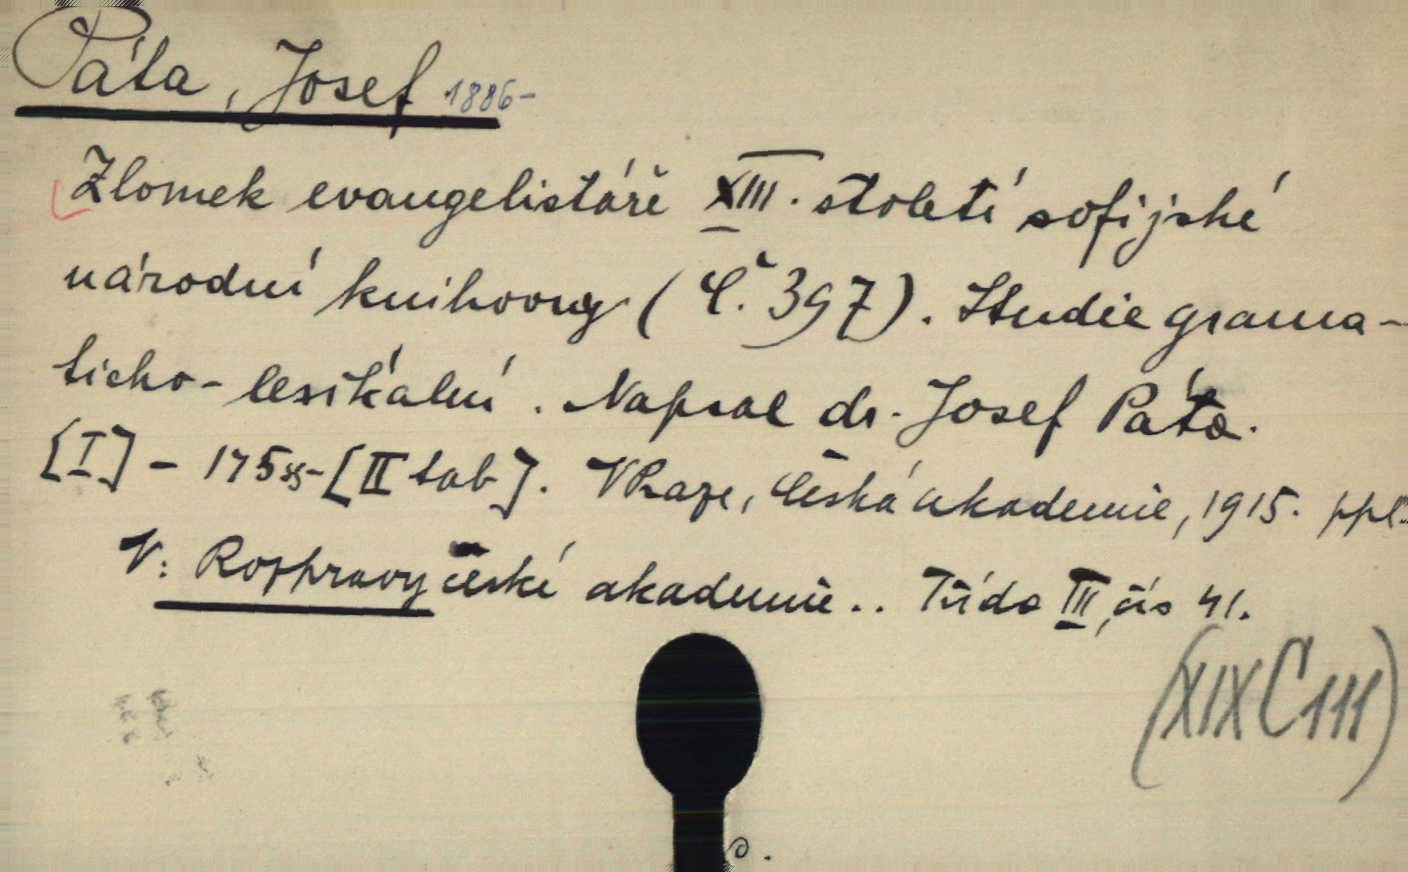 Páta, Josef 1886-
Zlomek evangelistáře XIII. století sofijské
národní knihovny (Č. 397). Studie grama-
ticko-lexikální. Napsal dr. Josef Páta.
[I] - 175 ss - [II tab]. V Praze, Česká akademie, 1915. ppl.
V: Rozpravy české akademie.. Třída III, čís 41.
(XIX C 111)